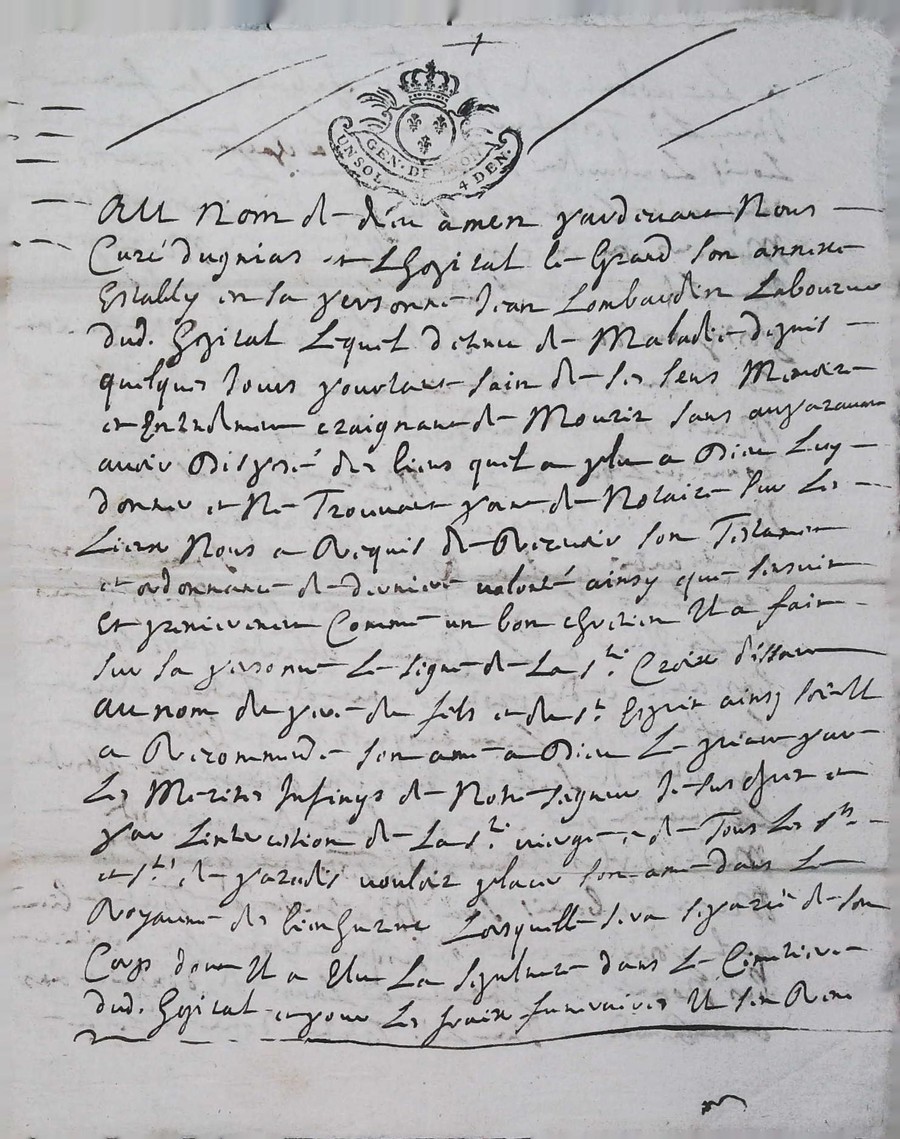 GEN. DE LYON
UN SOL 4 DEN.
AU Nom de dieu amen pardevant Nous
Curé dugnias et Lhopital le Grand son annexe
Establly en sa personne Jean Lombardin Laboureur
dud. hopital Lequel detenu de Maladie depuis
quelques Jours pourtant sain de ses sens Memoire
et Entendement craignant de Mourir sans auparavant
avoir Disposé des biens quil a plu a Dieu Luy
donner et Ne Trouvant point de Notaire sur Les
Lieux Nous a Requis de Recevoir son Testament
et ordonnance de derniere volonté ainsy que sensuit
Et premierement Comme un bon chretien Il a fait
sur sa personne Le signe de La ste. Croix disant
au nom du pere du fils et du st Esprit ainsy soit Il
a Recommandé son ame a Dieu Le priant par
Les Merites Infinys de Notre seigneur Jesus christ et
par Lintercession de La ste. vierge e de Tous Les sts
et stes de paradis vouloir placer son ame dans Le
Royaume des bienhureux Lorsquelle sera separée de son
Corps dont Il a Elu La sepulture dans Le Cimetiere
dud. hopital et pour Les fraix funeraires Il sen Remet